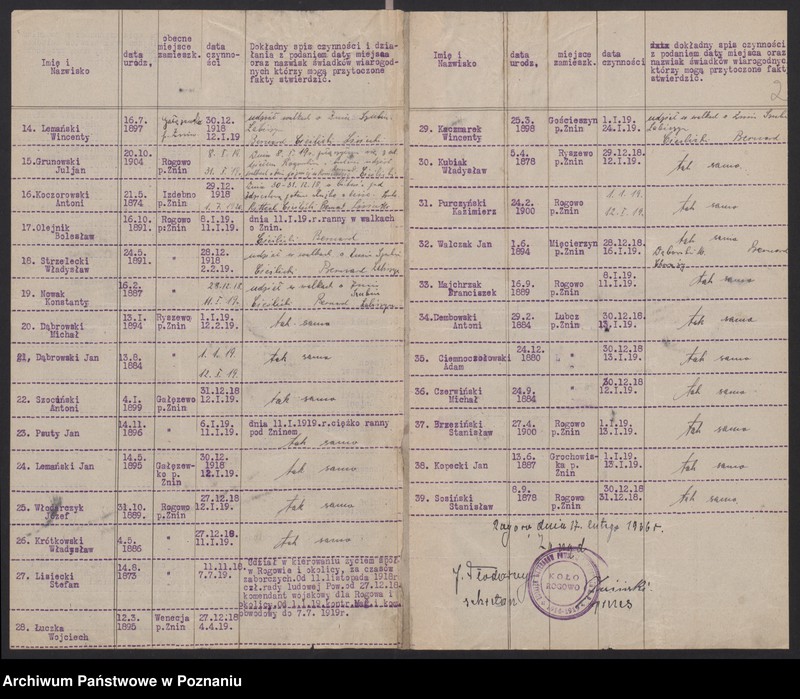 Imię i
Nazwisko
data
urodz,
obecne
miejsce
zamieszk.
data
czynno-
ści
Dokładny spis czynności i dzia-
łania z podaniem daty miejsca
oraz nazwisk świadków wiarogod-
nych którzy mogą przytoczone
fakty stwierdzić.
14. Lemański
Wincenty
16.7.
1897
30.12.
1918
12.I.19
udział w walkach o Żnin
15.Grunowski
Juljan
20.10.
1904
Rogowo
p.Żnin
16.Koczorowski
Antoni
21.5.
1874
Izdebno
p.Żnin
29.12.
1918
17.Olejnik
Bolesław
16.10.
1891.
Rogowo
p:Żnin
8.I.19.
11.I.19.
dnia 11.I.19.r.ranny w walkach
o Żnin.
Cieślicki Bernard
18. Strzelecki
Władysław
24.5.
1891.
"
28.12.
1918
2.2.19.
udział w walkach o Żnin
Cieślicki Bernard
19. Nowak
Konstanty
16.2.
1887
"
28.12.18
11.I.19.
udział w walkach o Żnin
Cieślicki Bernard
20. Dąbrowski
Michał
13.I.
1894
Ryszewo
p.Żnin
1.I.19.
12.2.19.
tak samo
21, Dąbrowski Jan
13.8.
1884
"
1.1.19.
12.I.19.
tak samo
22. Szociński
Antoni
4.I.
1899
Gałęzewo
p.Żnin
31.12.18
12.I.19.
tak samo
23. Psuty Jan
14.11.
1896
"
6.I.19.
11.I.19.
dnia 11.I.1919.r.ciężko ranny
pod Żninem.
tak samo
24. Lemański Jan
14.5.
1895
Gałęzew-
ko p.
Żnin
30.12.
1918
12.I.19.
tak samo
25. Włodarczyk
Józef
31.10.
1889.
Rogowo
p.Żnin
27.12.18
12.I.19.
tak samo
26. Krótkowski
Władysław
4.5.
1886
"
27.12.18.
11.I.19.
tak samo
27. Lisiecki
Stefan
14.8.
1873
"
11.11.18
7.7.19.
Udział w kierowaniu życiem społ.
w Rogowie i okolicy, za czasów
zaborczych.Od 11.listopada 1918r
czł.rady ludowej Pow.od 27.12.18.
komendant wojskowy dla Rogowa i
okolicy.Od 1.I.19 kontr.Mag.i kom.
obwodowy do 7.7. 1919r.
28. Łuczka
Wojciech
12.3.
1895
Wenecja
p.Żnin
27.12.18
4.4.19.
Imię i
Nazwisko
data
urodz,
miejsce
zamieszk.
data
czynności
dokładny spis czynności
z podaniem daty miejsca
oraz nazwisk świadków wiarogod
którzy mogą przytoczone fakty
stwierdzić.
2
29. Kaczmarek
Wincenty
25.3.
1898
Gościeszyn
p.Żnin
1.I.19.
24.I.19.
udział w walkach o Żnin
Cieślicki Bernard
30. Kubiak
Władysław
5.4.
1878
Ryszewo
p.Żnin
29.12.18.
12.I.19.
tak samo
31. Purczyński
Kazimierz
24.2.
1900
Rogowo
p.Żnin
1.1.19.
12.I.19.
tak samo
32. Walczak Jan
1.6.
1894
Mięcierzyn
p.Żnin
28.12.18.
16.I.19.
tak samo
Bernard
33. Majchrzak
Franciszek
16.9.
1889
Rogowo
p.Żnin
8.I.19.
11.I.19.
tak samo
34.Dembowski
Antoni
29.2.
1884
Lubcz
p.Żnin
30.12.18
13.I.19.
tak samo
35. Ciemnoczołowski
Adam
24.12.
1880
"
"
30.12.18
13.I.19.
tak samo
36. Czerwiński
Michał
24.9.
1884
"
30.12.18
12.I.19.
tak samo
37. Brzeziński
Stanisław
27.4.
1900
Rogowo
p.Żnin
1.I.19.
13.I.19.
tak samo
38. Kopecki Jan
13.6.
1887
Grochowis-
ka p.
Żnin
1.I.19.
13.I.19.
tak samo
39. Sosiński
Stanisław
8.9.
1878
Rogowo
p.Żnin
30.12.18
31.12.18.
tak samo
Rogowo, dnia 17. lutego 1936r.
Zarząd
KOŁO
ROGOWO
prezes
Archiwum Państwowe w Poznaniu